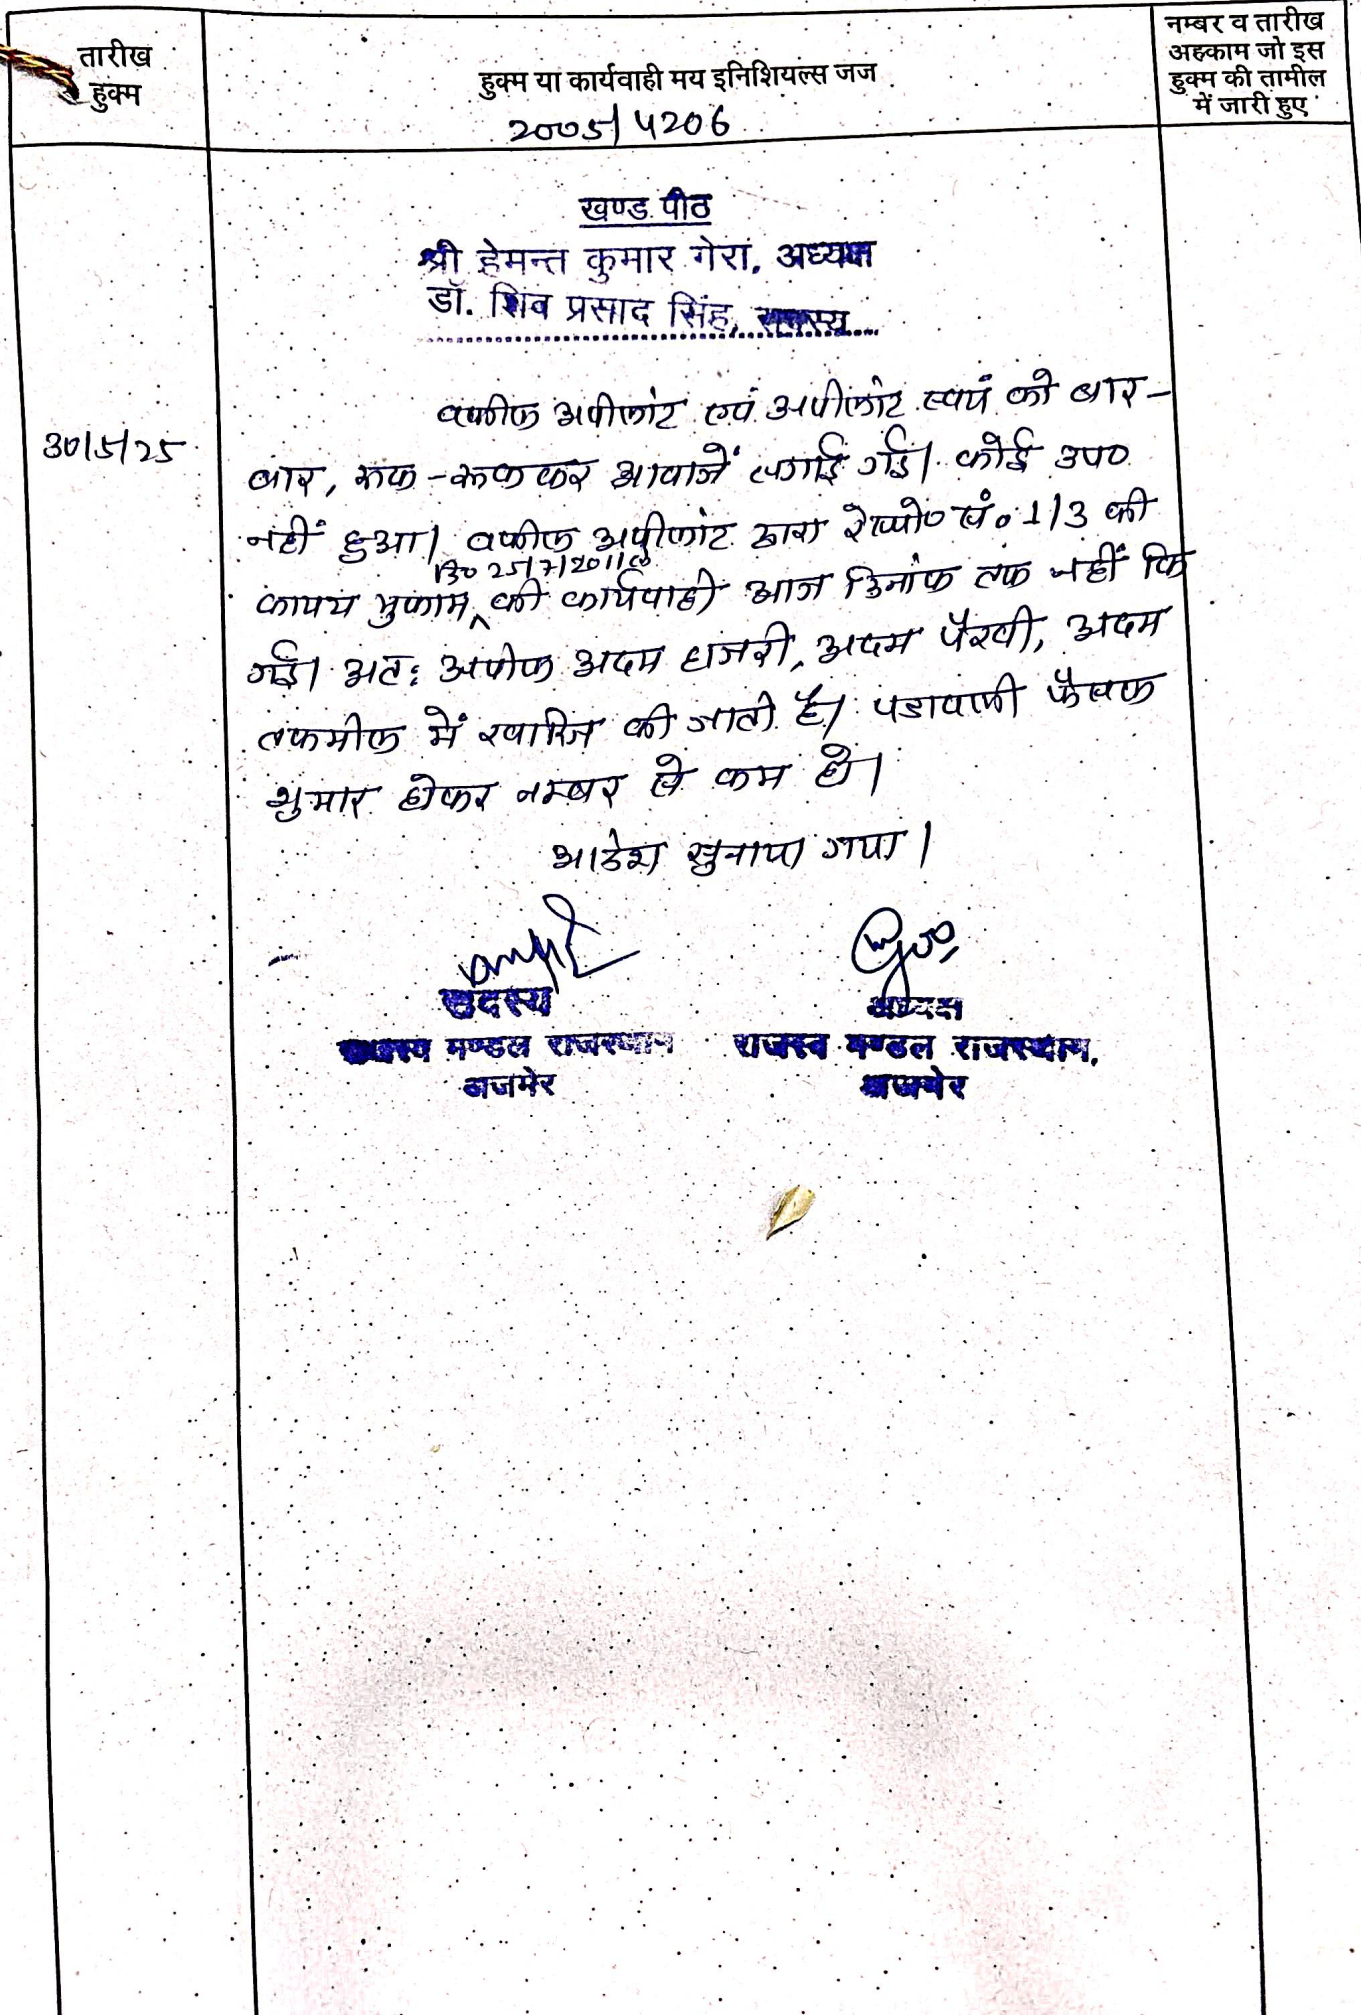 तारीख
हुक्म
हुक्म या कार्यवाही मय इनिशियल्स जज
2005/4206
नम्बर व तारीख
अहकाम जो इस
हुक्म की तामील
में जारी हुए
खण्ड पीठ
श्री हेमन्त कुमार गेरा, अध्यक्ष
डॉ. शिव प्रसाद सिंह, सदस्य
30/5/25
वकील अपीलांट एवं अपीलांट स्वयं को बार-
बार, रूक-रूककर आवाजें लगाई गई। कोई उप०
नहीं हुआ। वकील अपीलांट द्वारा रेस्पो० सं० 1/3 की
दि० 25/7/2011 से
कायम मुकाम की कार्यवाही आज दिनांक तक नहीं कि
गई। अतः अपील अदम हाजरी, अदम पैरवी, अदम
तकमील में खारिज की जाती है। पत्रावली फैसल
शुमार होकर नम्बर से कम हो।
आदेश सुनाया गया।
सदस्य
राजस्व मण्डल राजस्थान
अजमेर
अध्यक्ष
राजस्व मण्डल राजस्थान,
अजमेर